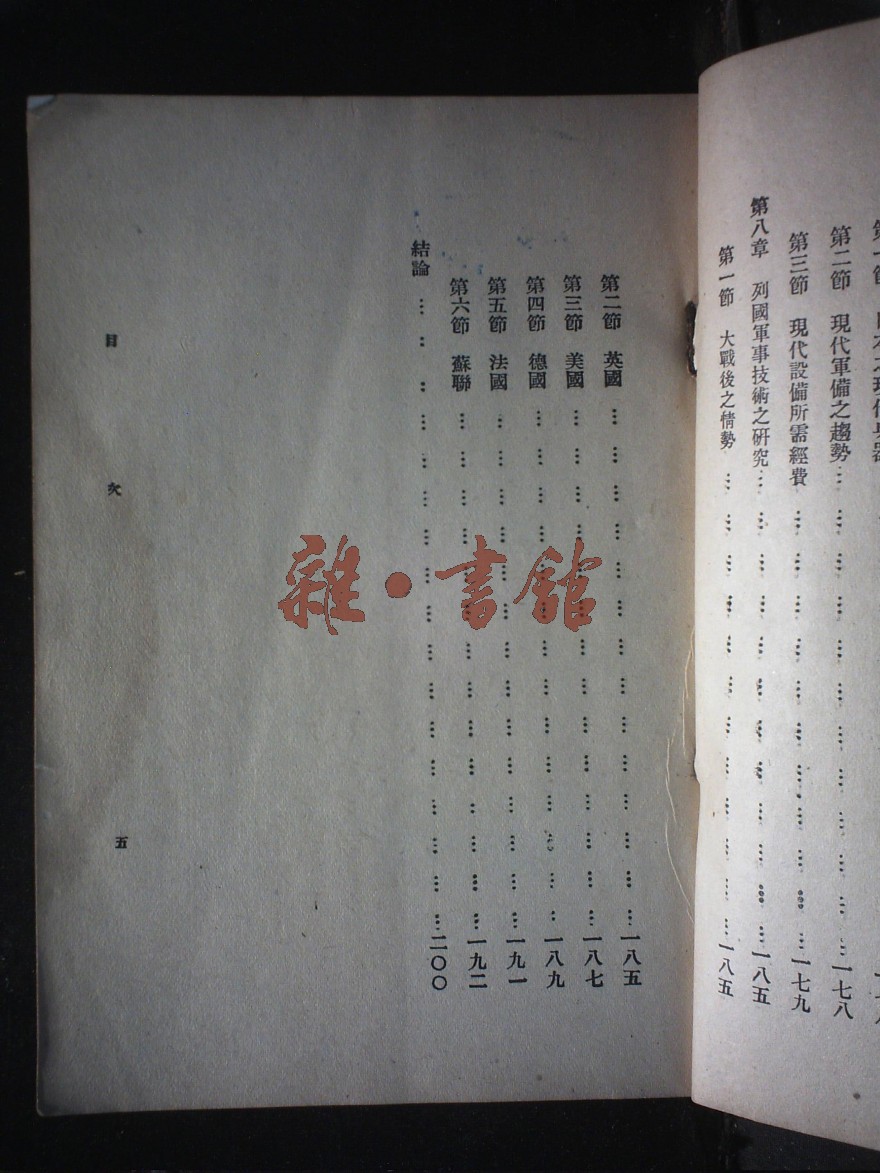 第二節 現代軍備之趨勢…………一七八
第三節 現代設備所需經費…………一七九
第八章 列國軍事技術之研究…………一八五
第一節 大戰後之情勢…………一八五
第二節 英國…………一八五
第三節 美國…………一八七
第四節 德國…………一八九
第五節 法國…………一九一
第六節 蘇聯…………一九二
結論…………二〇〇
目 次 五
雜·書館